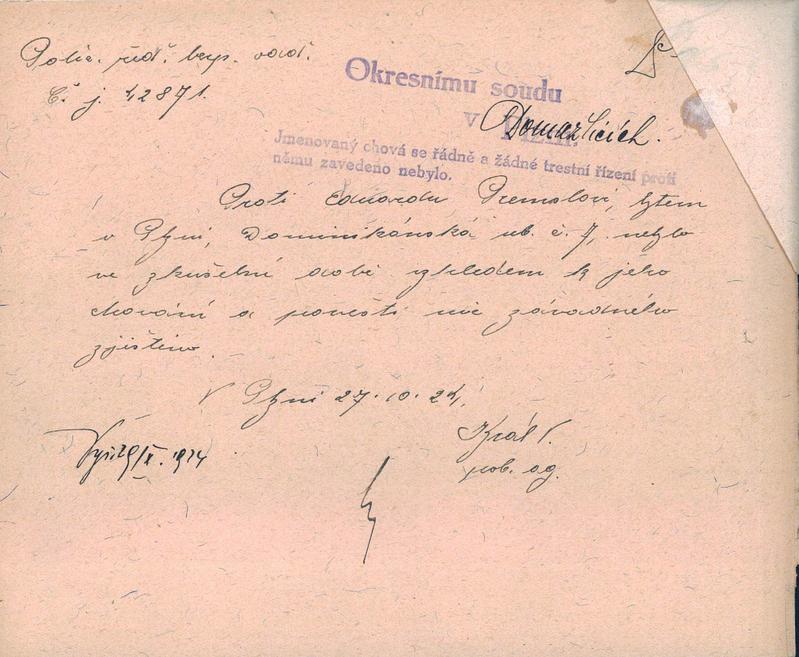 Polic. řed. bezp. odd.
Č. j. 42871.
Okresnímu soudu
v Domažlicích.
Jmenovaný chová se řádně a žádné trestní řízení proti
němu zavedeno nebylo.
Proti Eduardu bytem
v Plzni, Dominikánská ul. č. 7, nebylo
ve zkušební době vzhledem k jeho
chování a pověsti nic závadného
zjištěno.
V Plzni 27. 10. 24.
Král V.
pob. ag.
1924